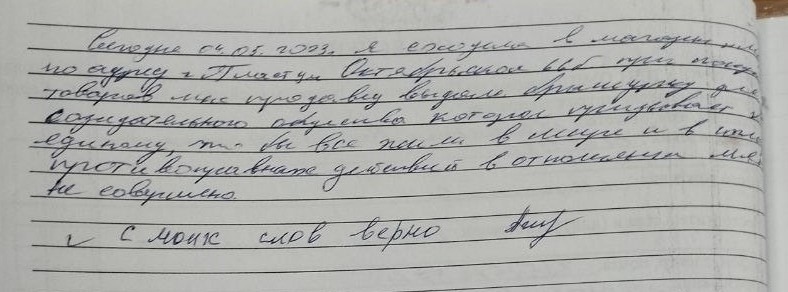 Сегодня 04.05.2023г. я сходила в магазин
по адресу г. Пластун Октябрьская при
товаров мне продавец выдала брошюру для
созидательного общества которое призывает к
единому, что бы все жили в мире и в
противоправных действий в отношении меня
не совершено.
с моих слов верно